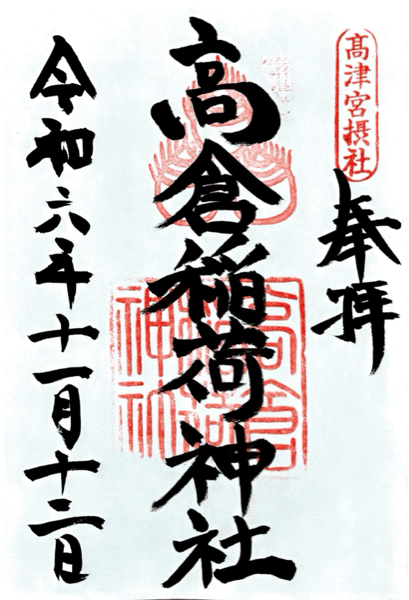 髙津宮摂社
奉拝
高倉稲荷神社
令和六年十一月十二日